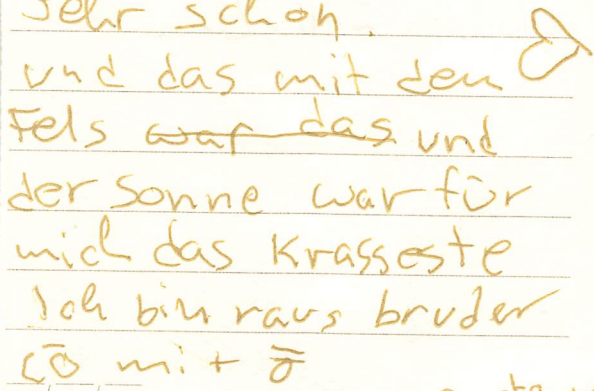 sehr schön.
und das mit dem
Fels war das und
der Sonne war für
mich das Krasseste
Ich bin raus bruder
mit